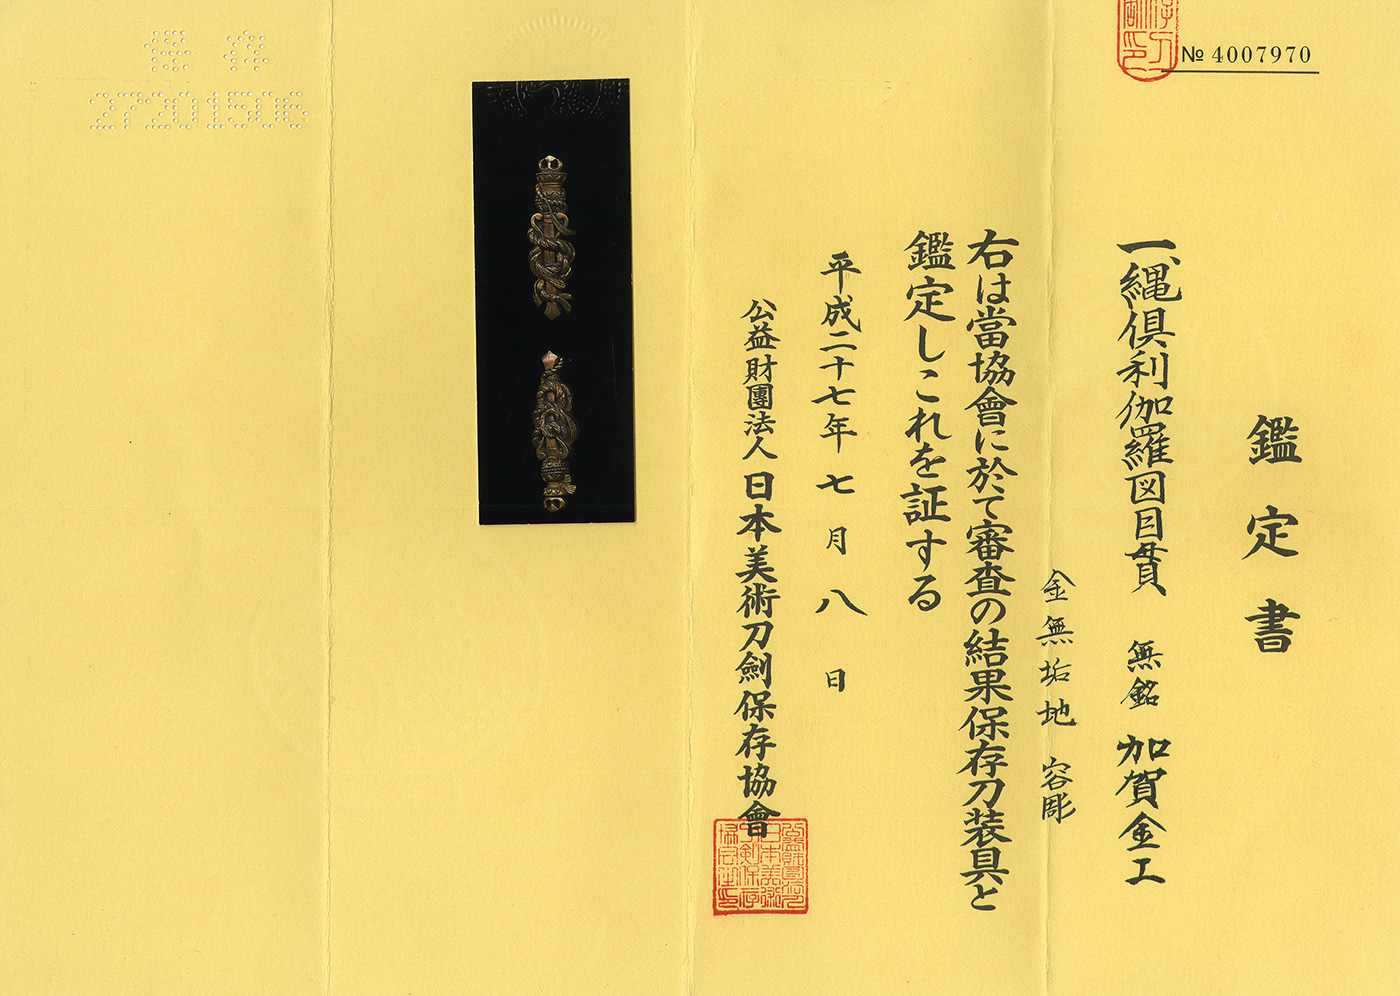 № 4007970
鑑定書
一、縄倶利伽羅図目貫 無銘 加賀金工
金無垢地 容彫
右は當協會に於て審査の結果保存刀装具と
鑑定しこれを証する
平成二十七年七月八日
公益財團法人 日本美術刀劍保存協會
保存
27201506